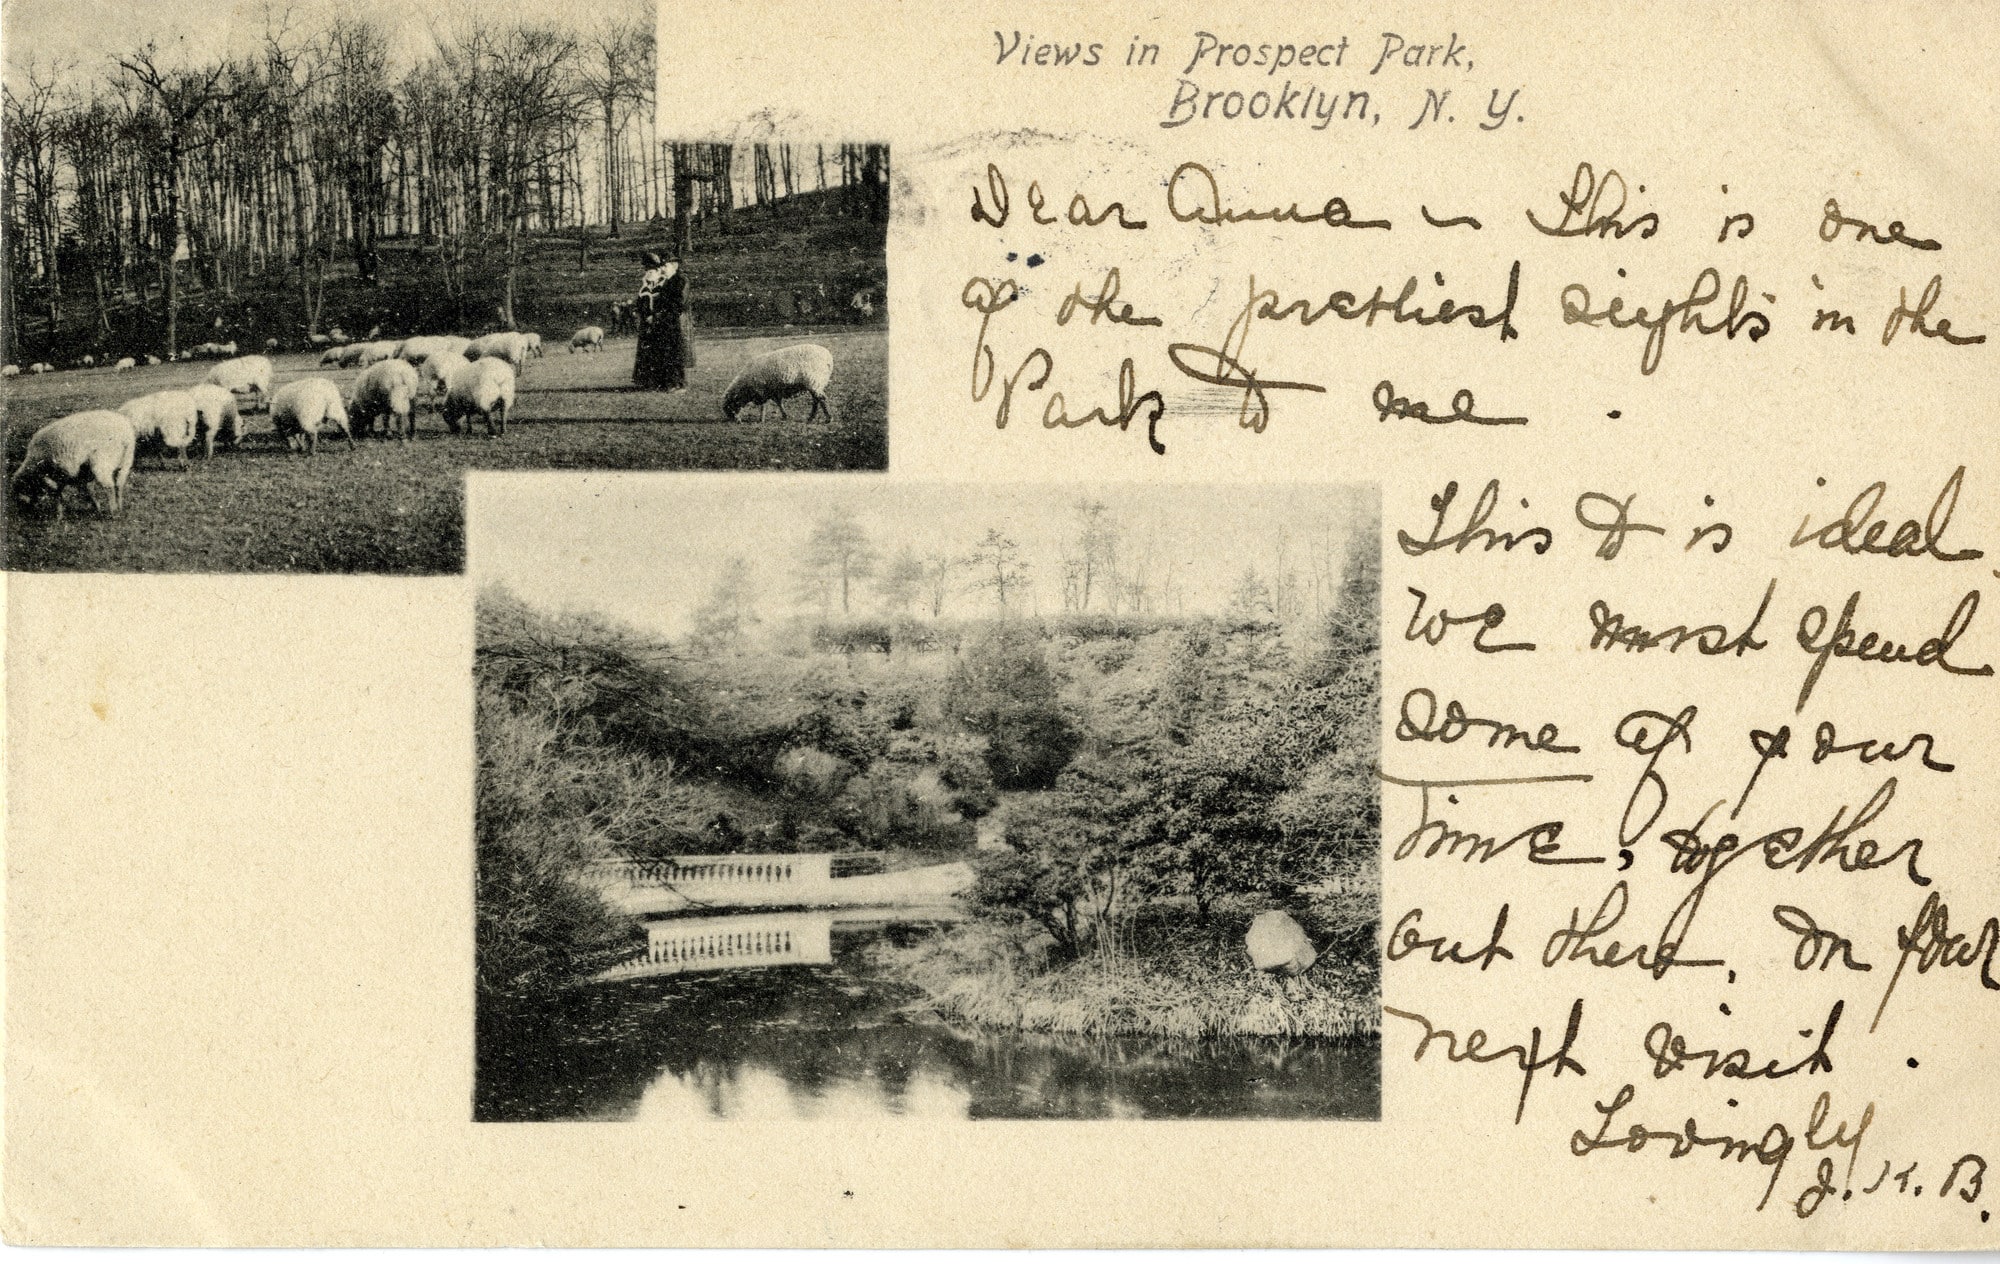 Views in Prospect Park,
Brooklyn, N. Y.
Dear Anna ~ This is one
of the prettiest sights in the
Park to me.
This is ideal.
We must spend
some of your
time, together
out there, on your
next visit.
Lovingly
J. K. B.